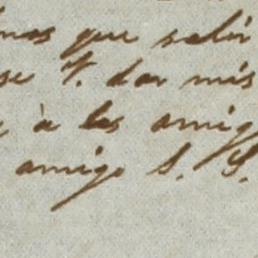 mas que salir
se V. dar mis
à los amig
amigo S. S.